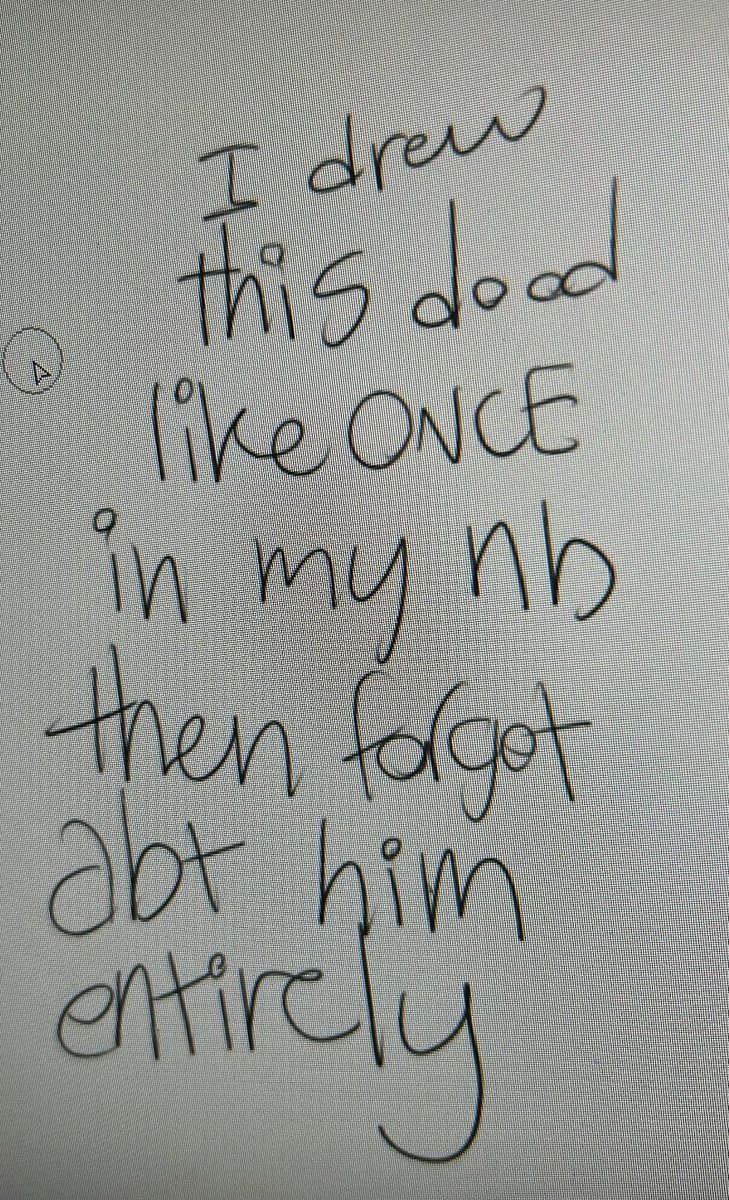 I drew
this dood
like ONCE
in my nb
then forgot
abt him
entirely